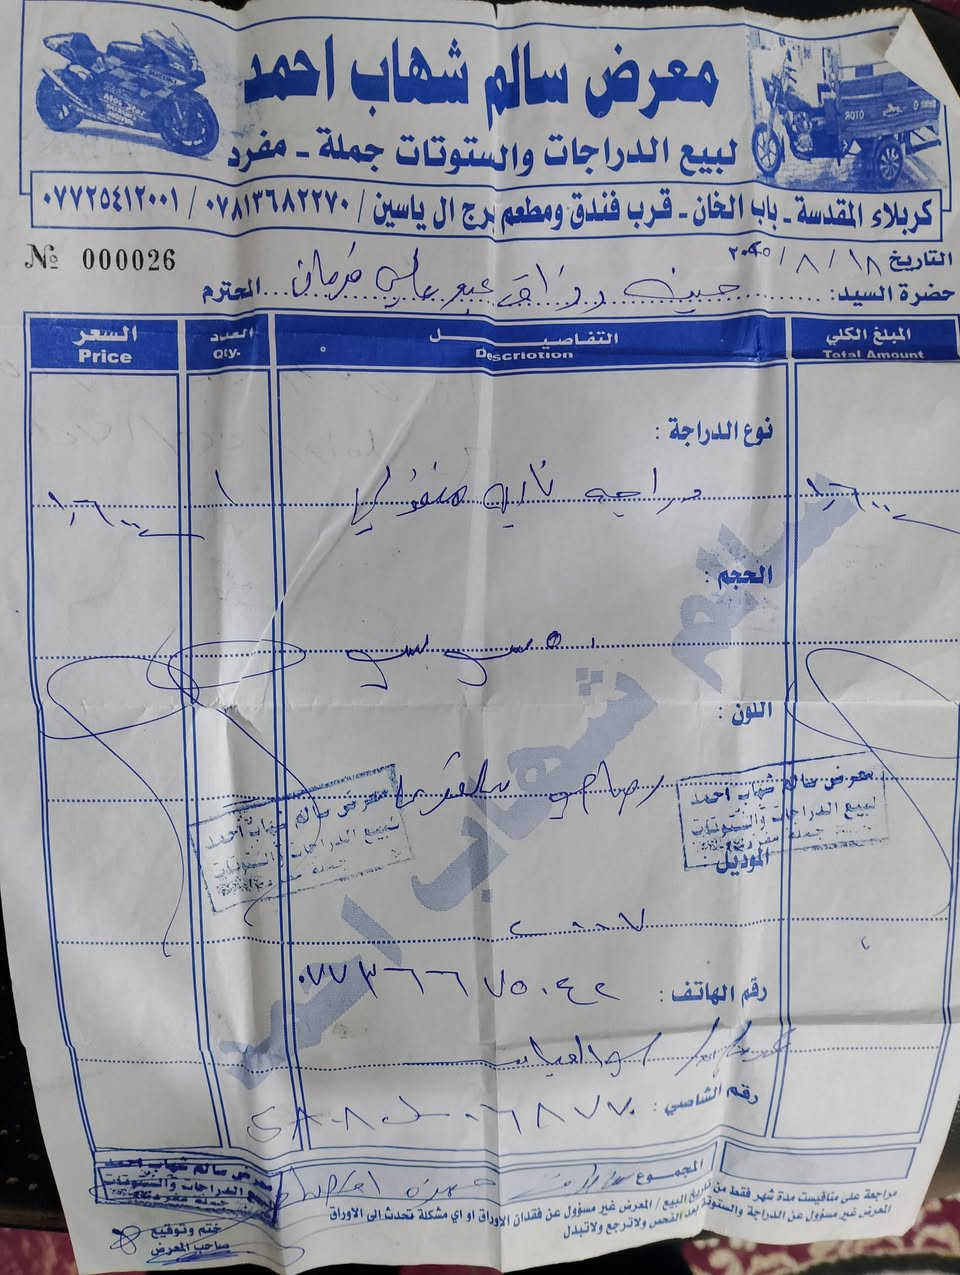 معرض سالم شهاب احمد
لبيع الدراجات والستوتات جملة - مفرد
كربلاء المقدسة - باب الخان - قرب فندق ومطعم برج ال ياسين / ٠٧٨١٣٦٨٢٢٧٠ / ٠٧٧٢٥٤١٢٠٠١
№ 000026
التاريخ ١٨ / ٨ /
حضرة السيد: حسين رزاق عبد علي فرمان المحترم
المبلغ الكلي التفاصيل العدد السعر
Total Amount Description Qty. Price
نوع الدراجة :
دراجه ناريه ١
الحجم :
سي سي
اللون :
رصاصي
معرض سالم شهاب احمد
لبيع الدراجات والستوتات
جملة مفرد
معرض سالم شهاب احمد
لبيع الدراجات والستوتات
جملة مفرد
الموديل
٢٠٠٧
رقم الهاتف : ٠٧٧٣٦٦٧٥٠٤٢
رقم الشاصي :
المجموع
مراجعة على منافيست مدة شهر فقط من تاريخ البيع / المعرض غير مسؤول عن فقدان الاوراق او اي مشكلة تحدث الى الاوراق
المعرض غير مسؤول عن الدراجة والستوتة بعد الفحص ولاترجع ولاتبدل
معرض سالم شهاب احمد
لبيع الدراجات والستوتات
جملة مفرد
ختم وتوقيع
صاحب المعرض
سالم شهاب احمد